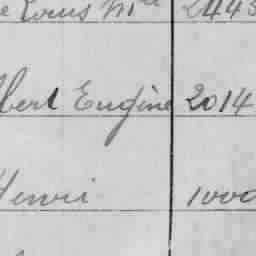 e Louis Mre 2443
bert Eugène 2014
Henri 1000